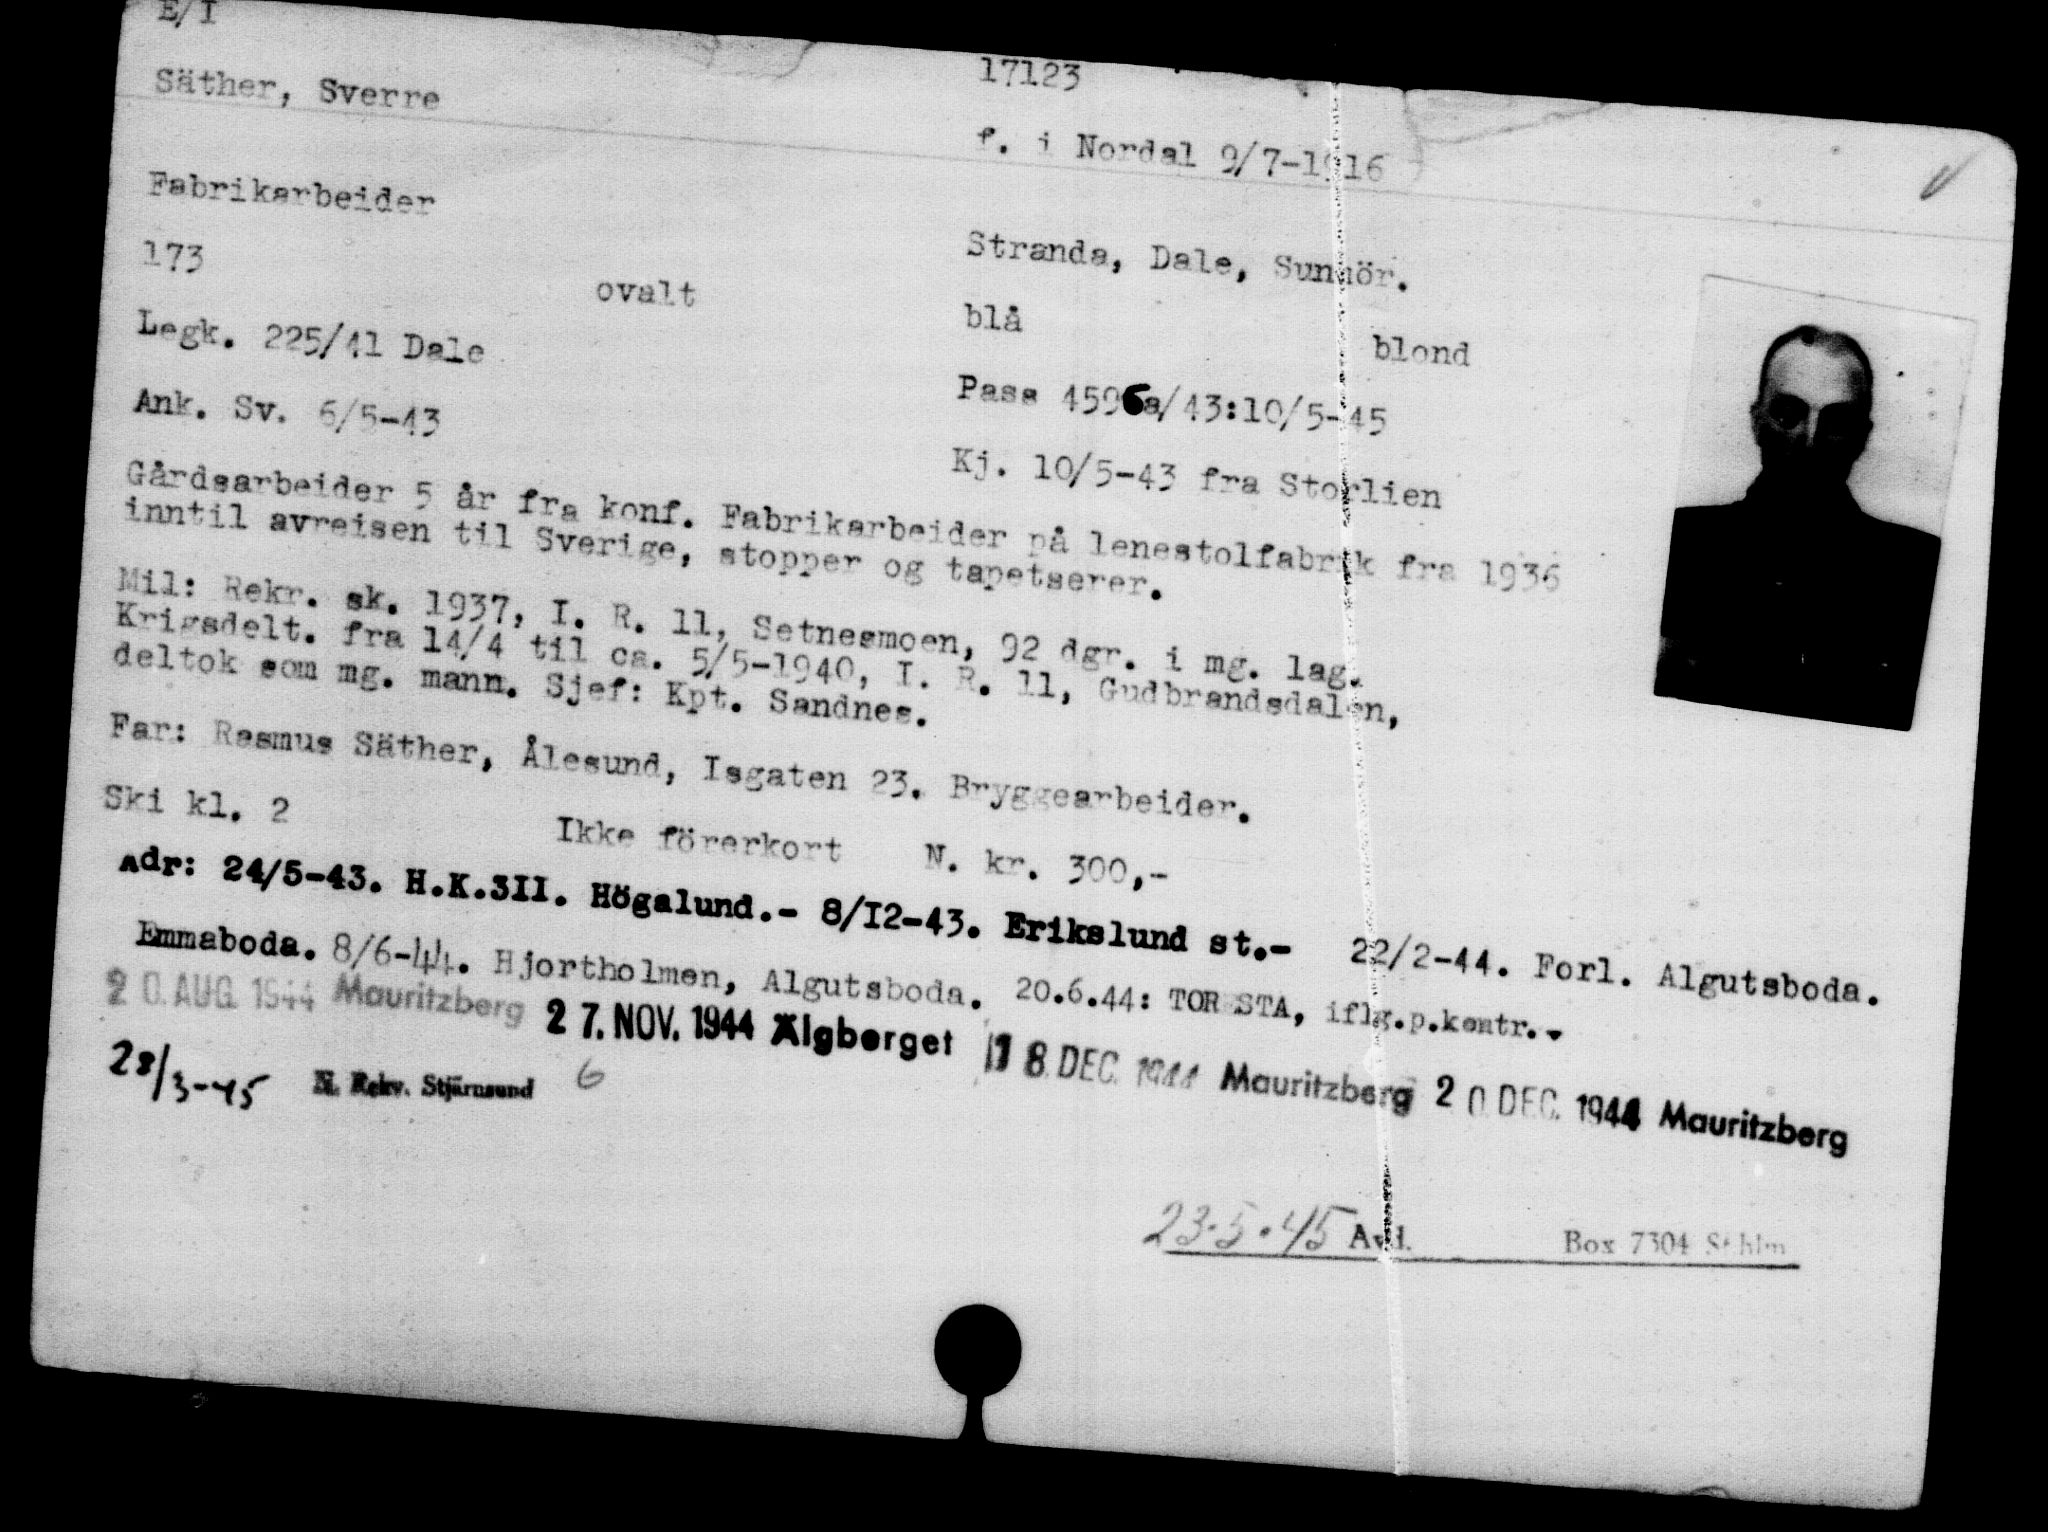 E/I
Säther, Sverre 17123
f. i Nordal 9/7-1916
Fabrikarbeider
Stranda, Dale, Sunnör.
173 ovalt blå blond
Legk. 225/41 Dale Pass 4596a/43:10/5-45
Ank. Sv. 6/5-43 Kj. 10/5-43 fra Storlien
Gårdsarbeider 5 år fra konf. Fabrikarbeider på lenestolfabrik fra 1936
inntil avreisen til Sverige, stopper og tapetserer.
Mil: Rekr. sk. 1937, I. R. 11, Setnesmoen, 92 dgr. i mg. lag.
Krigsdelt. fra 14/4 til ca. 5/5-1940, I. R. 11, Gudbrandsdalen,
deltok som mg. mann. Sjef: Kpt. Sandnes.
Far: Rasmus Säther, Ålesund, Isgaten 23. Bryggearbeider.
Ski kl. 2 Ikke förerkort N. kr. 300,-
Adr: 24/5-43. H.K.3II. Högalund.- 8/I2-43. Erikslund st.- 22/2-44. Forl. Algutsboda.
Emmaboda. 8/6-44. Hjortholmen, Algutsboda. 20.6.44: TORESTA, iflg.p.kontr.-
20. AUG. 1944 Mauritzberg 27. NOV. 1944 Älgberget 18. DEC. 1944 Mauritzberg 20. DEC. 1944 Mauritzberg
28/3-45 N. Rekv. Stjärnsund 6
23.5.45 Avd. Box 7304 Sthlm